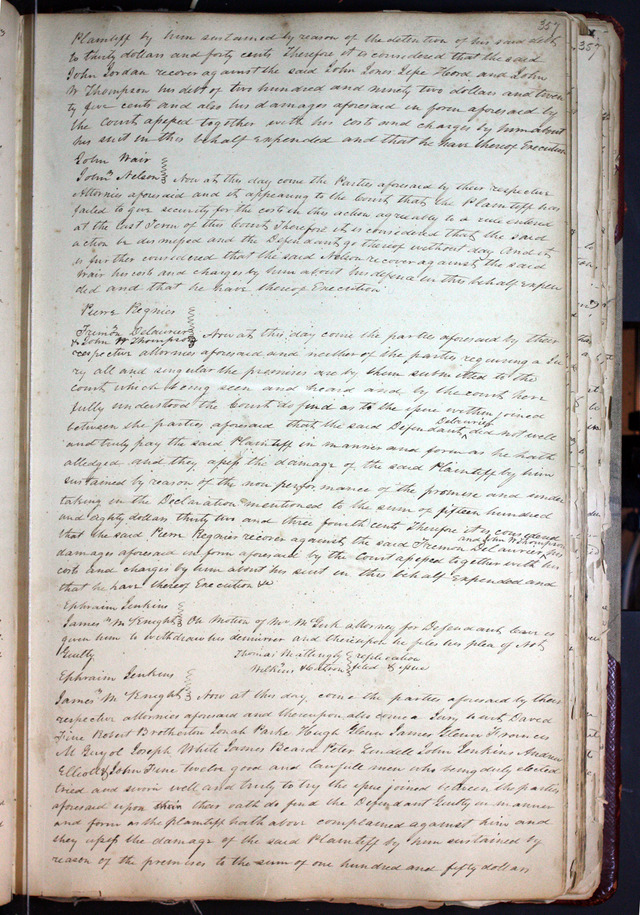 357
Plaintiff by him sustained by reason of the detention of his said debt
to thirty dollars and forty cents Therefore it is considered that the said
John Jordan recover against the said John Jones Heard and John
W Thompson his debt of two hundred and ninety two dollars and twen
ty five cents and also his damages aforesaid in form aforesaid by
the Court assessed together with his costs and charges by him about
his suit in this behalf expended and that he have thereof Execution
John Wair
John Nelson Now at this day come the Parties aforesaid by their respective
Attornies aforesaid and it appearing to the Court that the Plaintiff has
failed to give security for the costs in this action agreeably to a rule entered
at the last Term of this Court Therefore it is considered that the said
action be dismissed and the Defendant go thereof without day And it
is further considered that the said Nelson recover against the said
Wair his costs and charges by him about his defence in this behalf expen
ded and that he have thereof Execution
Pierre Regnier
Tremon Delaurier
& John W Thompson Now at this day come the parties aforesaid by their
respective attornies aforesaid and neither of the parties requiring a Ju
ry all and singular the premises are by them submitted to the
court which being seen and heard and by the court here
fully understood the Court do find as to the issue within joined
between the parties aforesaid that the said Defendant Delaurier did not well
and truly pay the said Plaintiff in manner and form as he hath
alledged and they assess the damage of the said Plaintiff by him
sustained by reason of the non performance of the promise and under
taking in the Declaration mentioned to the sum of fifteen hundred
and eighty dollars thirty two and three fourth cents Therefore it is considered
that the said Pierre Regnier recover against the said Tremon Delaurier and John W Thompson his
damages aforesaid in form aforesaid by the Court assessed together with his
costs and charges by him about his suit in this behalf Expended and
that he have thereof Execution &c
Ephraim Jenkins
James McKnight On Motion of Mr McGirk attorney for Defendant leave is
given him to withdraw his demurrer and thereupon he files his plea of Not
Guilty
Thomas Mattingly replication
filed & issue
Ephraim Jenkins
James McKnight Now at this day come the parties aforesaid by their
respective attornies aforesaid and thereupon also came a Jury to wit David
Fine Robert Brotherton Jonah Parke Hough Glenn James Glenn Francis
M Guyol Joseph White James Beard Peter Lindell John Jenkins Andrew
Elliott & John Fine twelve good and lawfull men who being duly elected
tried and sworn well and truly to try the issue joined between the parties
aforesaid upon their oath do find the Defendant Guilty in manner
and form as the plaintiff hath above complained against him and
they assess the damage of the said Plaintiff by him sustained by
reason of the premises to the sum of one hundred and fifty dollars
357